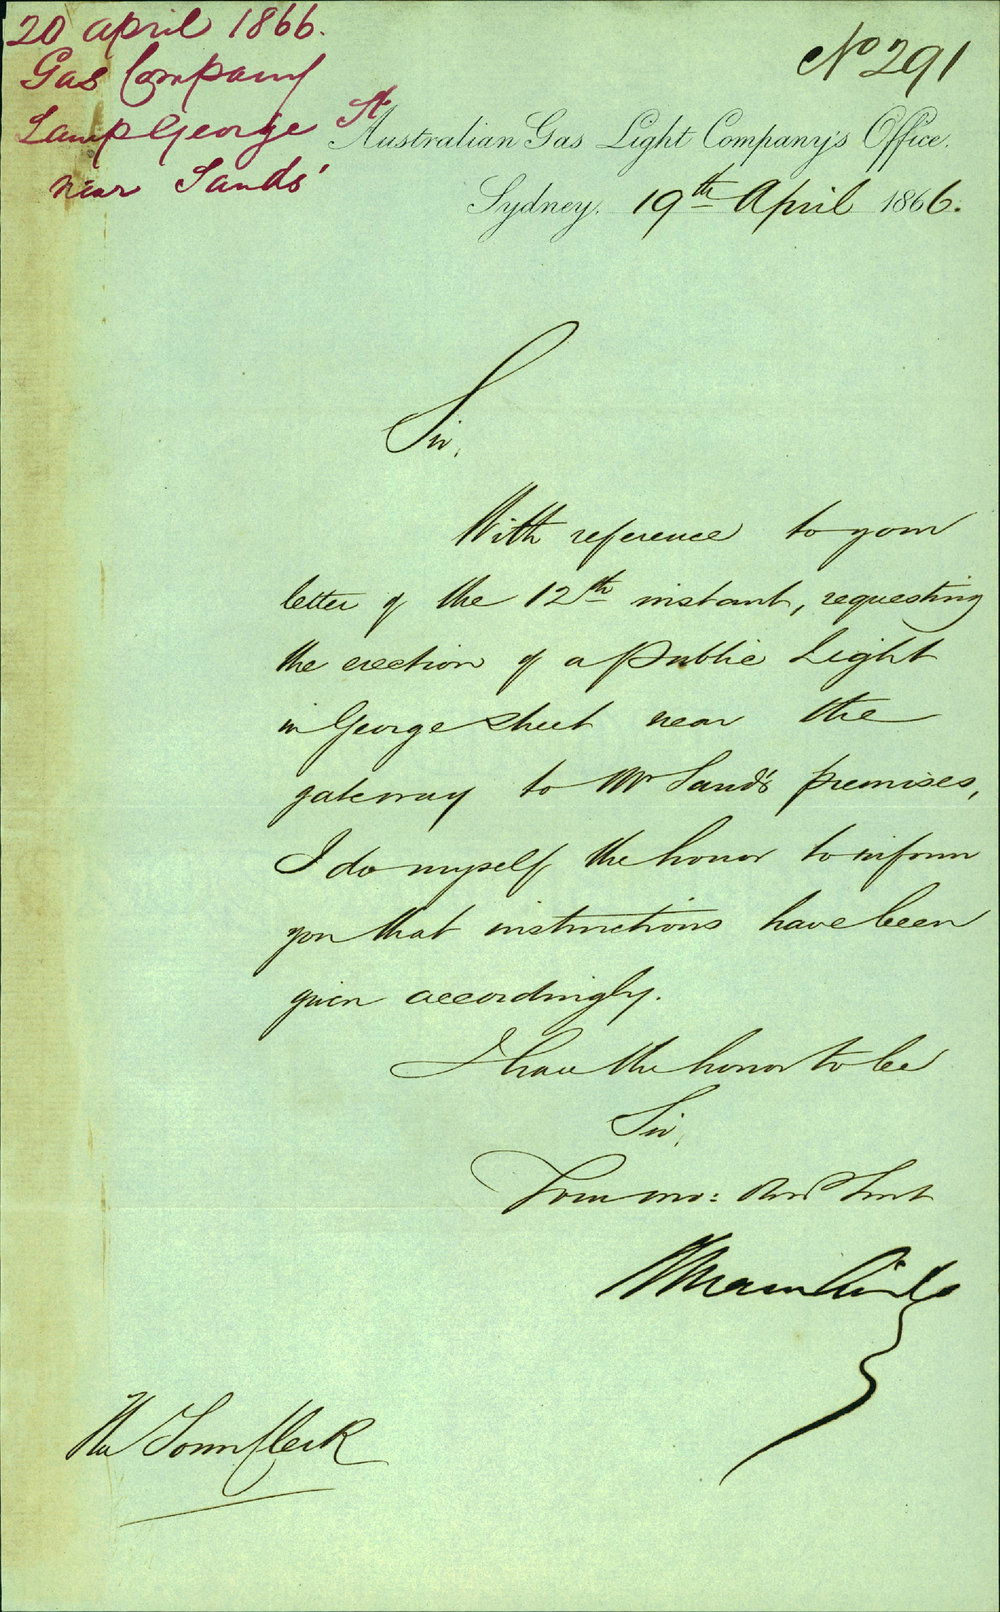 20 April 1866.
Gas Company
Lamp George St
near Sands'
No 291
Australian Gas Light Company's Office.
Sydney, 19th April 1866.
Sir,
With reference to your
letter of the 12th instant, requesting
the erection of a public Light
in George Street near the
gateway to Mr Sand's premises,
I do myself the honor to inform
you that instructions have been
given accordingly.
I have the honor to be
Sir,
Your mo: Obed Servt
The Town Clerk